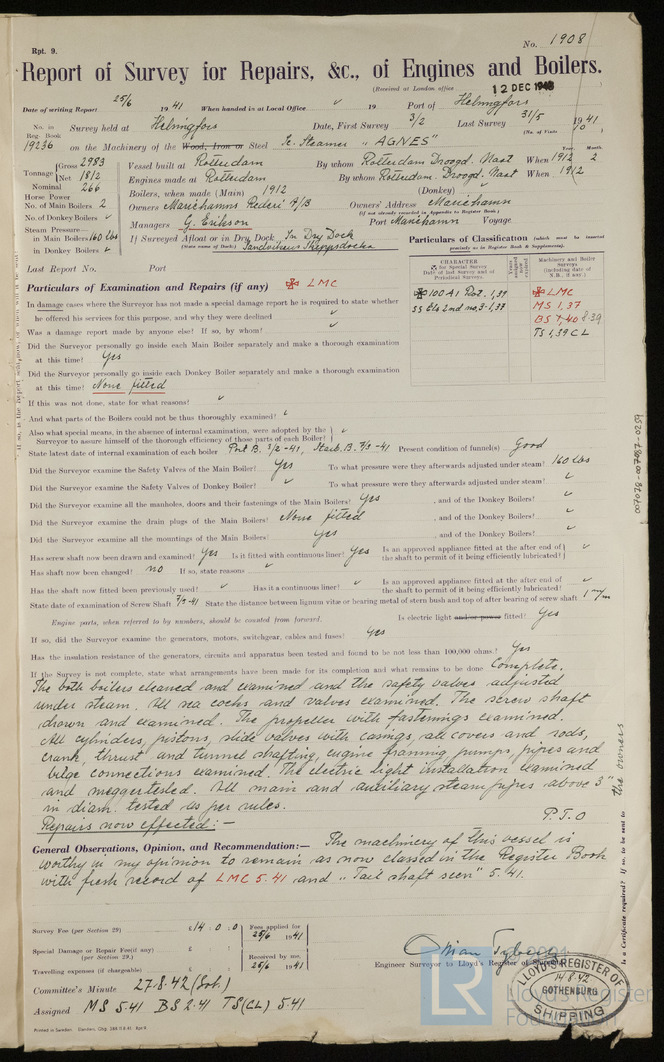 Rpt. 9.
No. 1908
Report of Survey for Repairs, &c., of Engines and Boilers.
(Received at London office 12 DEC 1945
Date of writing Report 25/6 1941 When handed in at Local Office ✓ 19 Port of Helsingfors
No. in Reg. Book 19236 Survey held at Helsingfors Date, First Survey 3/2 Last Survey 31/5 1941
(No. of Visits 10)
on the Machinery of the Wood, Iron or Steel Sc. Steamer "AGNES"
Tonnage Gross 2983 Net 1812
Vessel built at Rotterdam By whom Rotterdam Droogd. Maat When 1912 Year. Month. 2
Engines made at Rotterdam By whom Rotterdam. Droogd. Maat When 1912
Nominal Horse Power 266
Boilers, when made (Main) 1912 (Donkey) ✓
No. of Main Boilers 2
Owners Mariehamns Rederi A/B Owners' Address Mariehamn
(if not already recorded in Appendix to Register Book.)
No. of Donkey Boilers ✓
Managers G. Erikson Port Mariehamn Voyage
Steam Pressure— in Main Boilers 160 lbs in Donkey Boilers ✓
If Surveyed Afloat or in Dry Dock In Dry Dock
(State name of Dock.) Sandvikens Skeppsdocka
Last Report No. Port
Particulars of Classification (which must be inserted precisely as in Register Book & Supplements).
CHARACTER
✠ for Special Survey
Date of last Survey and of Periodical Surveys.
Machinery and Boiler Surveys
(including date of N.B., if any.)
✠ 100A1 Rot. 1,39
SS Els 2nd no. 3-1,37
✠ LMC
MS 1,37
BS 7,40 8.39
TS 1,39 CL
Particulars of Examination and Repairs (if any) ✠ LMC
In damage cases where the Surveyor has not made a special damage report he is required to state whether
he offered his services for this purpose, and why they were declined ✓
Was a damage report made by anyone else? If so, by whom? ✓
Did the Surveyor personally go inside each Main Boiler separately and make a thorough examination
at this time? Yes
Did the Surveyor personally go inside each Donkey Boiler separately and make a thorough examination
at this time! None fitted
If this was not done, state for what reasons? ✓
And what parts of the Boilers could not be thus thoroughly examined? ✓
Also what special means, in the absence of internal examination, were adopted by the
Surveyor to assure himself of the thorough efficiency of those parts of each Boiler! ✓
State latest date of internal examination of each boiler Port B. 3/2 -41, Starb. B. 7/3 -41 Present condition of funnel(s) Good
Did the Surveyor examine the Safety Valves of the Main Boiler! Yes To what pressure were they afterwards adjusted under steam! 160 lbs
Did the Surveyor examine the Safety Valves of Donkey Boiler? ✓ To what pressure were they afterwards adjusted under steam! ✓
Did the Surveyor examine all the manholes, doors and their fastenings of the Main Boilers! Yes , and of the Donkey Boilers! ✓
Did the Surveyor examine the drain plugs of the Main Boilers! None fitted , and of the Donkey Boilers! ✓
Did the Surveyor examine all the mountings of the Main Boilers! Yes , and of the Donkey Boilers! ✓
Has screw shaft now been drawn and examined! Yes Is it fitted with continuous liner! Yes Is an approved appliance fitted at the after end of the shaft to permit of it being efficiently lubricated! ✓
Has shaft now been changed! no If so, state reasons ✓
Has the shaft now fitted been previously used! ✓ Has it a continuous liner! ✓ Is an approved appliance fitted at the after end of the shaft to permit of it being efficiently lubricated! ✓
State date of examination of Screw Shaft 7/3 -41 State the distance between lignum vitæ or bearing metal of stern bush and top of after bearing of screw shaft 1 m/m
Engine parts, when referred to by numbers, should be counted from forward.
Is electric light and/or power fitted! Yes
If so, did the Surveyor examine the generators, motors, switchgear, cables and fuses! Yes
Has the insulation resistance of the generators, circuits and apparatus been tested and found to be not less than 100,000 ohms! Yes
If the Survey is not complete, state what arrangements have been made for its completion and what remains to be done Complete.
The both boilers cleaned and examined and the safety valves adjusted
under steam. All sea cocks and valves examined. The screw shaft
drawn and examined. The propeller with fastenings examined.
All cylinders, pistons, slide valves with casings, all covers and rods,
crank, thrust and tunnel shafting, engine framing pumps, pipes and
bilge connections examined. The electric light installation examined
and meggertested. All main and auxiliary steam pipes above 3"
in diam. tested as per rules.
P.T.O
Repairs now effected:—
General Observations, Opinion, and Recommendation:— The machinery of this vessel is
worthy in my opinion to remain as now classed in the Register Book
with fresh record of LMC 5.41 and "Tail shaft seen" 5.41.
Survey Fee (per Section 29) £14 : 0 : 0 Fees applied for 25/6 1941
Special Damage or Repair Fee (if any) (per Section 29.) £ : :
Received by me, 25/6 1941
Travelling expenses (if chargeable) £ : :
Engineer Surveyor to Lloyd's Register of Shipping
Committee's Minute 27.8.42 (Got.)
Assigned MS 5.41 BS 2.41 TS(CL) 5.41
LLOYD'S REGISTER OF SHIPPING
14.8.42
GOTHENBURG
LR
Lloyd's Register
Foundation
Is a Certificate required? If so, to be sent to the owners
007078-007087-0259